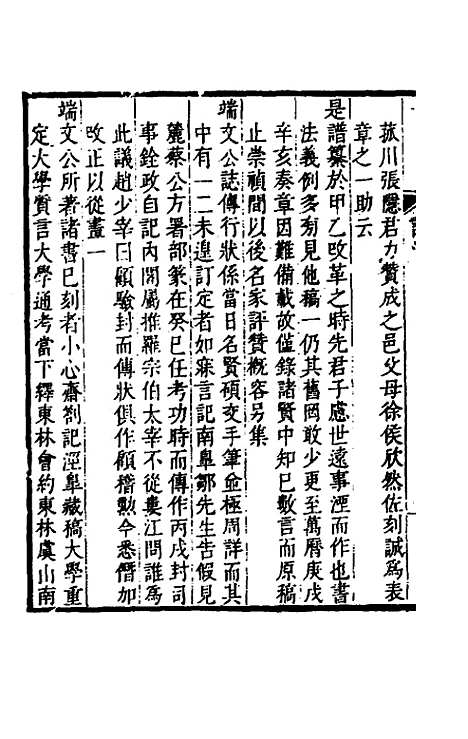 菰川張隱君力贊成之邑父母徐侯欣然佐刻誠爲表
章之一助云
是譜纂於甲乙改革之時先君子慮世遠事湮而作也書
法義例多有見他稿一仍其舊罔敢少更至萬曆庚戌
辛亥奏章因難備載故僅錄諸賢中知已數言而原稿
止崇禎間以後名家評贊槪容另集
端文公誌傳行狀係當日名賢碩交手筆僉極周詳而其
中有一二未遑訂定者如寐言記南臯鄒先生告假見
麓蔡公方署部篆在癸巳任考功時而傳作丙戌封司
事銓政自記內閣屬推羅宗伯太宰不從婁江問誰爲
此議趙少宰曰顧驗封而傳狀俱作顧稽勲今悉僭加
改正以從畫一
端文公所著諸書已刻者小心齋劄記涇臯藏稿大學重
定大學質言大學通考當下繹東林會約東林虞山南